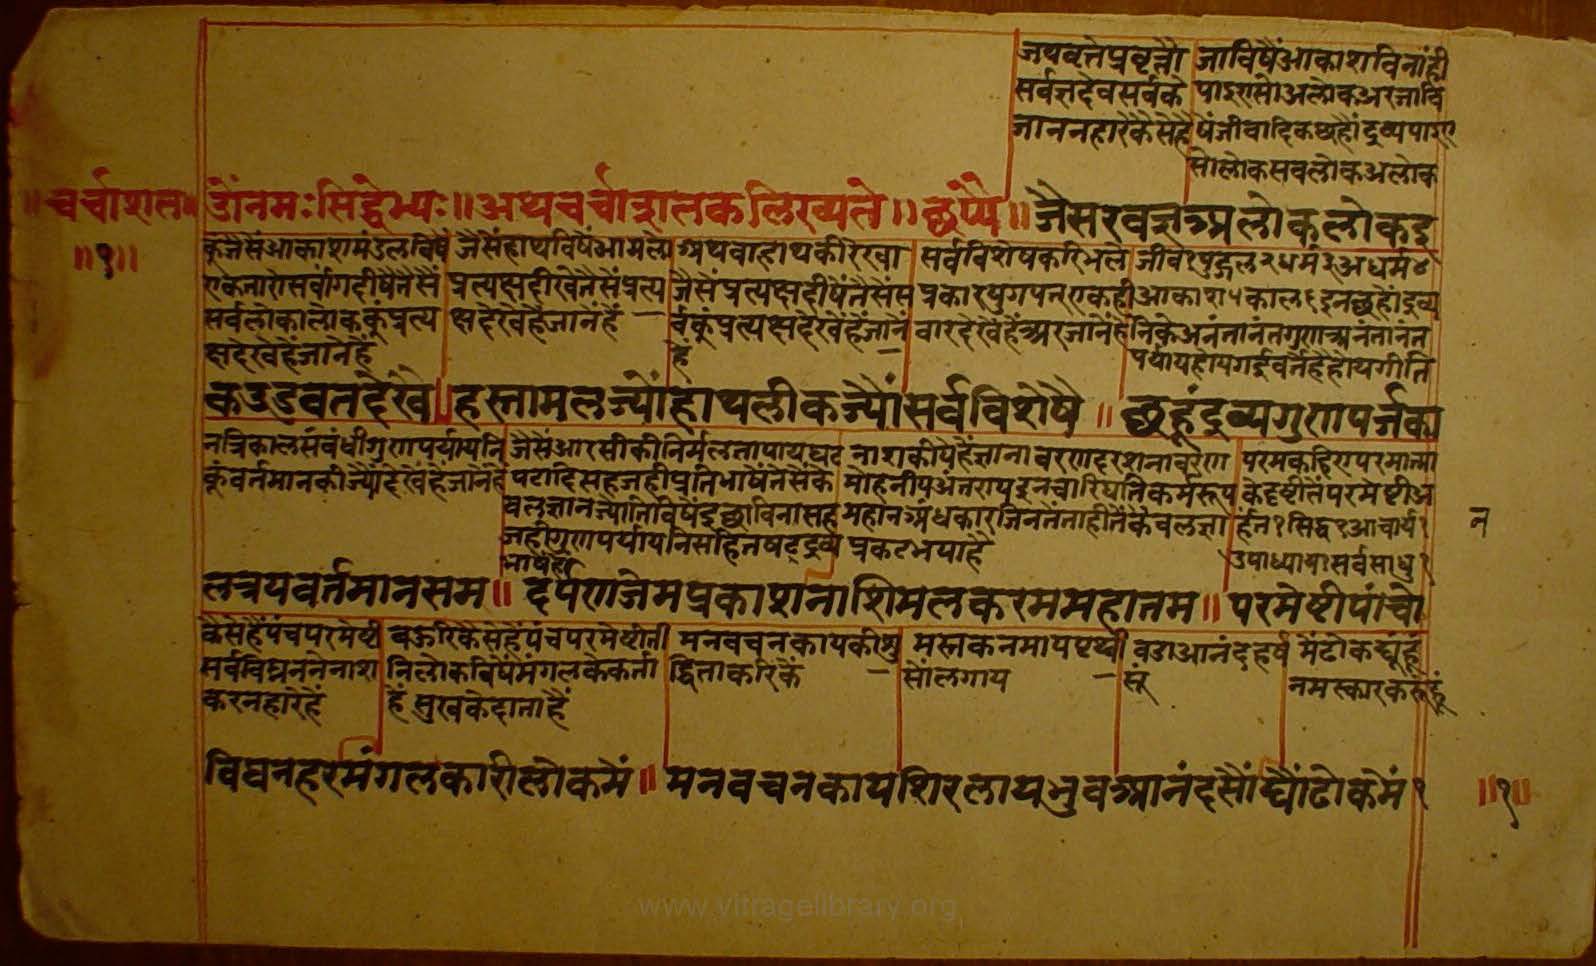 जयवृत्तेप्रवृत्तौ जाविषैंआकाशविनांही
सर्वज्ञदेवसर्वके पाइएसोअलोकअरजावि
जाननहारेकैसेहै षैंजीवादिकछहौंद्रव्यपाइए
सोलोकसवलोकअलोक
॥चर्चाशत॥ ॐनमःसिद्धेभ्यः॥अथचर्चाशतकलिख्यते॥छप्पै॥जैसरवज्ञअलोकलोकइ
॥१॥
कूंजैसैंआकाशमंडलविषैं जैसेंहाथविषैंआमलो अथवाहाथकीरेखा सर्वविशेषकरिभले जीव१पुद्गल२धर्म३अधर्म४
एकतारोसर्वांगदीषैतैसैं प्रत्यक्षदीखेतैसेंप्रत्य जैसेंप्रत्यक्षदीषैंतैसेंस प्रकारयुगपतएकही आकाश५काल६इनछहौंद्रव्य
सर्वलोकालोककूंप्रत्य क्षदेखेहैजानेंहैं र्वकूंप्रत्यक्षदेखेंहैंजानें वारदेखेंहेंअरजानेंहें निकेअनंतानंतगुणअनंतानंत
क्षदेखेहेंजानेहें हैं पर्यायहोयगईवर्तैहैहोयगीति
कउडवतदेखै॥हस्तामलज्योंहाथलीकज्यौंसर्वविशेषै॥छहूंद्रव्यगुणपर्जका
नत्रिकालसंबंधीगुणपर्यायनि जैसेंआरसीकीनिर्मलतापायघट नाशकीयेहैंज्ञानावरणदरशनावरण परमकहिएपरमात्मा
कूंवर्तमानकीज्यौंदेखेंहैंजानेंहै पटादिसहजहीप्रतिभाषेंतैसेंके मोहनीयअंतरायइनचारिघातिकर्मरूप केदृष्टीतेंपरमेष्टीअ
वलज्ञानज्योतिविषैंइछाविनासह महानअंधकारजिनतेंताहीतैंकेवलज्ञा र्हत१सिद्ध१आचार्य१ न
जहीगुणपर्यायनिसहितषट्द्रव्य प्रकटभयाहै उपाध्याय१सर्वसाधु१
भाषेहैं
लत्रयवर्तमानसम॥दर्पणजेमप्रकाशनाशिमलकरममहातम॥परमेष्टीपांचो
कैसेहैंपंचपरमेष्टी बऊरिकैसेहैंपंचपरमेष्टीती मनवचनकायकीशु मस्तकनमायपृथ्वी वडाआनंदहर्ष मेंढोकद्यूंहूं
सर्वविघ्ननेनाश निलोकविषैंमंगलकेकर्ता द्धिताकरिकें सोंलगाय सूं नमस्कारकरूहूं
करनहारेहैं हैं सुखकेदाताहैं
विघनहरमंगलकारीलोकमें॥मनवचनकायशिरलायभुवआनंदसौंद्यौंढोकमें१ ॥१॥
www.vitragelibrary.org